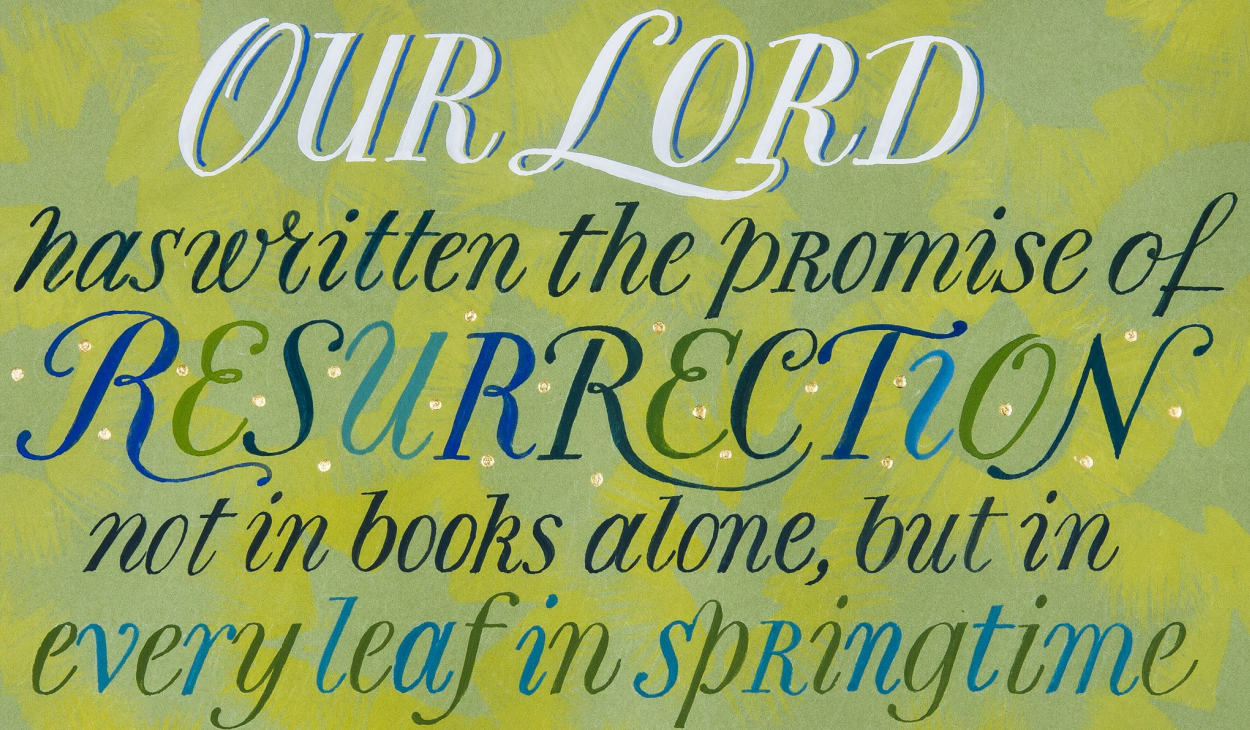 OUR LORD
has written the promise of
RESURRECTION
not in books alone, but in
every leaf in springtime